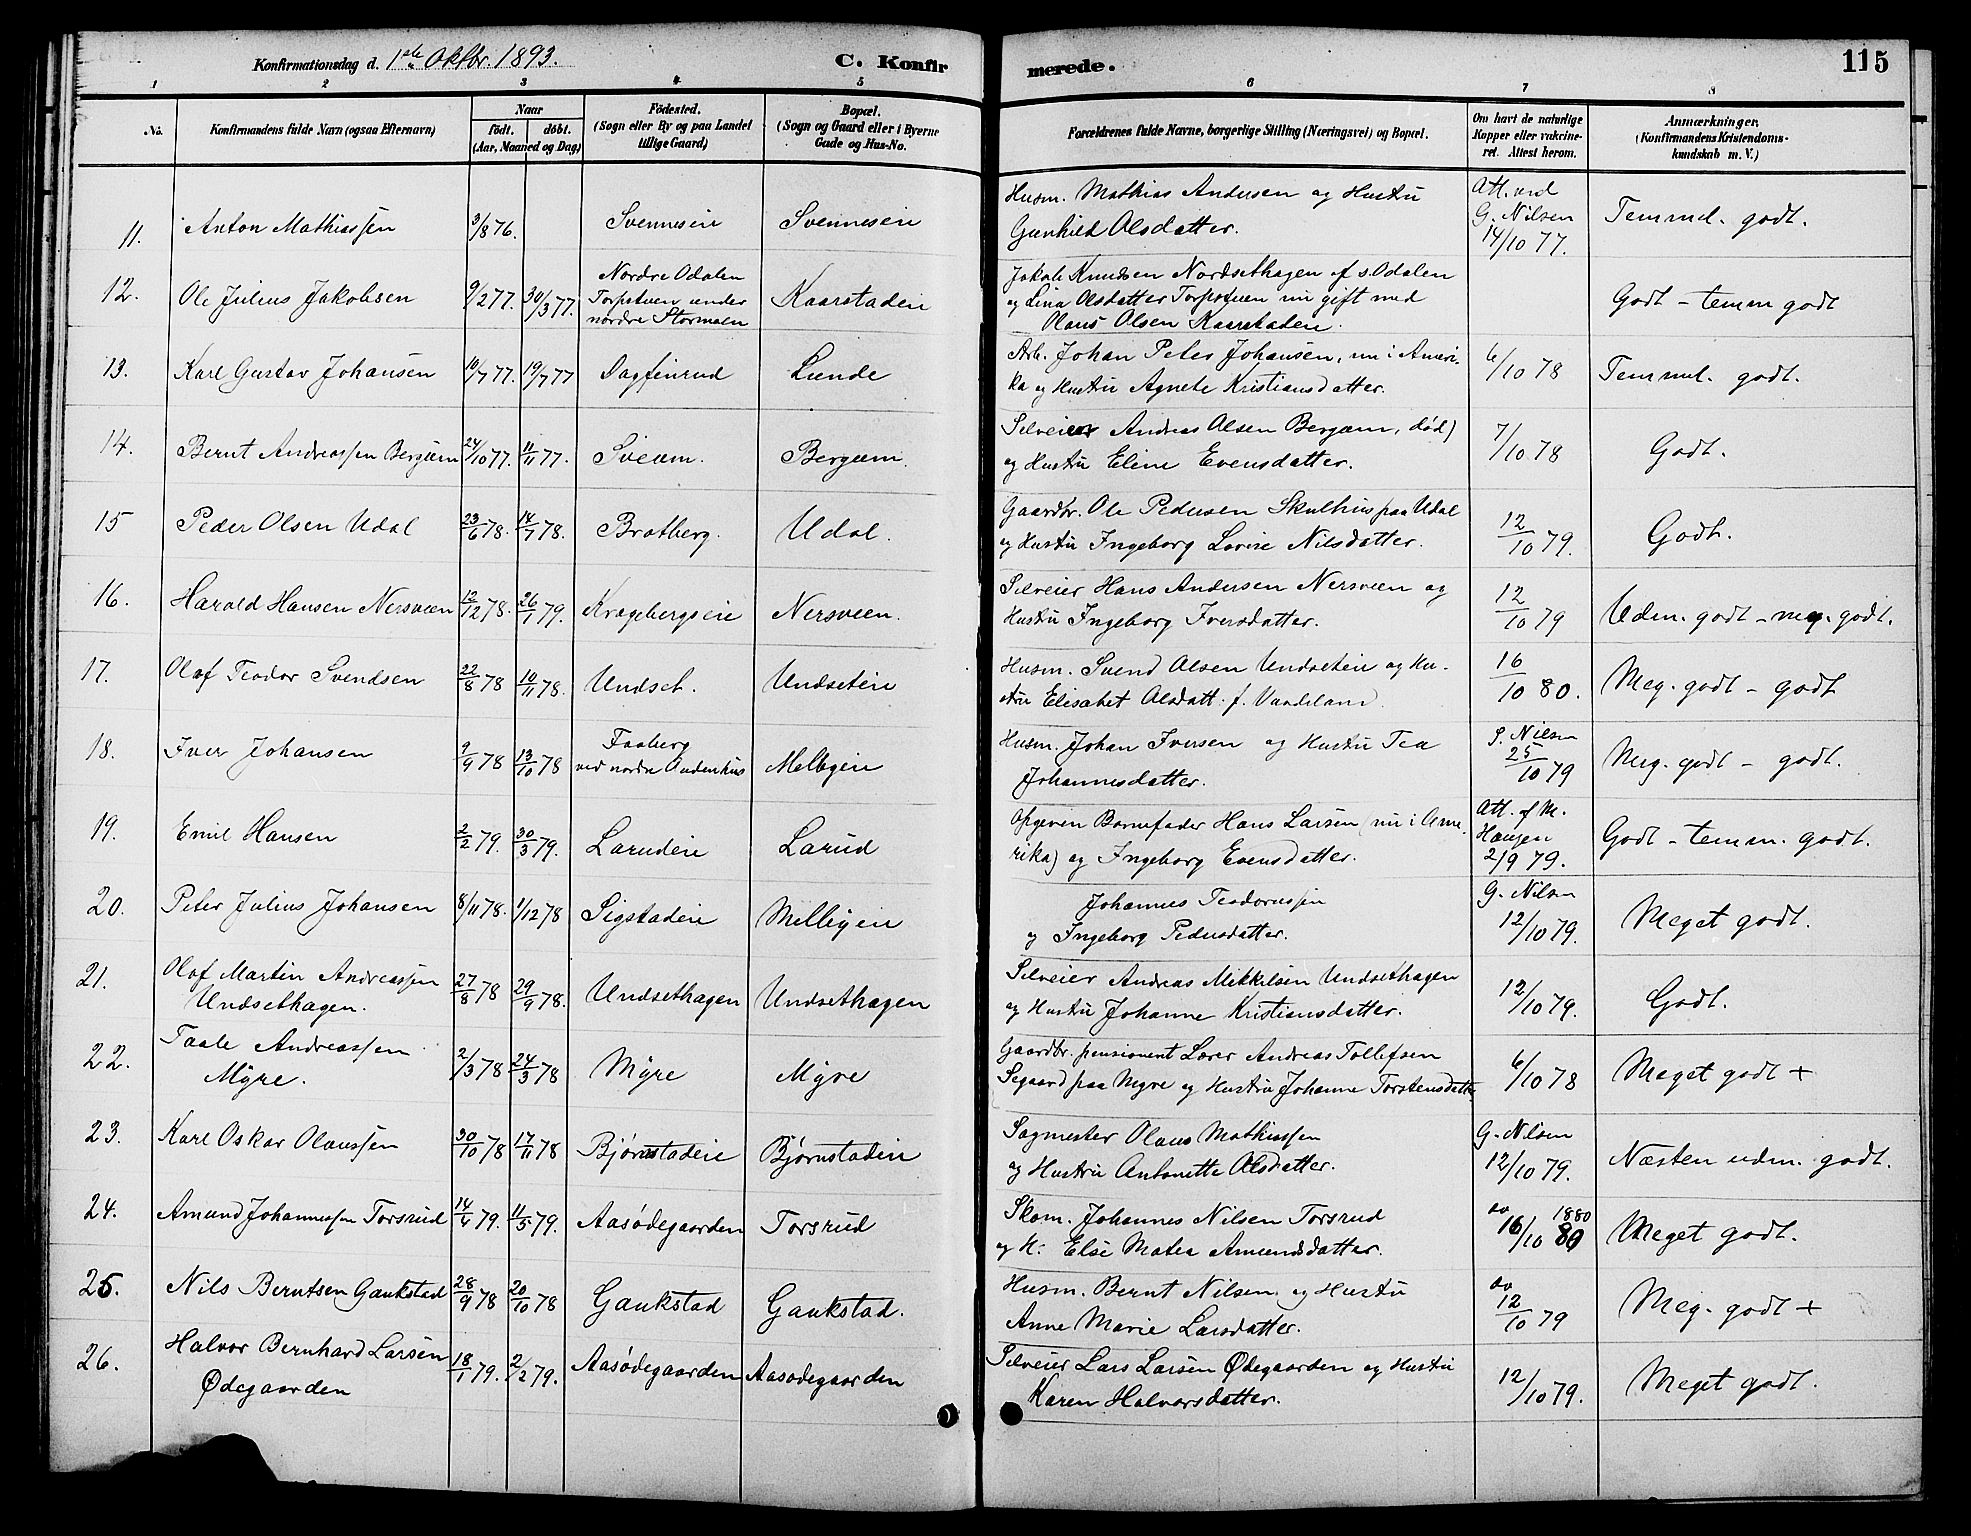 Konfirmationsdag d. 1ste Oktbr. 1893.
C. Konfirmerede.
115
1 2 3 4 5 6 7 8
No.
Konfirmandens fulde Navn (ogsaa Efternavn)
Naar
født. døbt.
(Aar, Maaned og Dag)
Fødested.
(Sogn eller By og paa Landet
tillige Gaard)
Bopæl.
(Sogn og Gaard eller i Byerne
Gade og Hus-No.
Forældrenes fulde Navne, borgerlige Stilling (Næringsvei) og Bopæl.
Om havt de naturlige
Kopper eller vakcine-
ret. Attest herom.
Anmærkninger,
(Konfirmandens Kristendoms-
kundskab m. V.)
11. Anton Mathiassen 3/8 76. Svenneseie Svenneseie
Husm. Mathias Andersen og Hustru
Gunhild Olsdatter.
Att. ved
G. Nilsen
14/10 77.
Temmel. godt.
12. Ole Julius Jakobsen 9/2 77. 30/3 77.
Nordre Odalen
Torpstuen under
nordre Stormoen
Kaarstaden
Jakob Knudsen Nordsethagen af s. Odalen
og Lina Olsdatter Torpstuen nu gift med
Olaus Olsen Kaarstaden.
Godt - temm godt
13. Karl Gustav Johansen 10/7 77. 19/7 77 Dagfinrud Lunde
Arb. Johan Peter Johansen, nu i Ameri-
ka og Hustru Agnete Kristiansdatter.
6/10 78 Temmel. godt.
14. Bernt Andreassen Bergum 24/10 77. 11/11 77. Sveum. Bergum.
Selveier Andreas Olsen Bergum, død)
og Hustru Eline Evensdatter.
7/10 78 Godt.
15 Peder Olsen Udal 23/6 78. 14/7 78. Bratberg. Udal.
Gaardbr. Ole Pedersen Skulhus paa Udal
og Hustru Ingeborg Lovise Nilsdatter.
12/10 79. Godt.
16. Harald Hansen Nersveen 12/12 78. 26/1 79. Kragebergseie Nersveen.
Selveier Hans Andersen Nersveen og
Hustru Ingeborg Iversdatter.
12/10 79 Udm. godt - meg. godt.
17. Olaf Teodor Svendsen 22/8 78 10/11 78. Undset. Undseteie
Husm. Svend Olsen Undseteie og Hu-
stru Elisabet Olsdatt. f. Vardeland
16/10 80. Meg. godt - godt
18. Iver Johansen 9/9 78 13/10 78
Faaberg
ved nordre
Melbyeie
Husm. Johan Iversen og Hustru Tea
Johannesdatter.
S. Nilsen
25/10 79
Meg. godt - godt.
19. Emil Hansen 2/2 79. 30/3 79. Larudeie Larud
Opgiven Barnefader Hans Larsen (nu i Ame-
rika) og Ingeborg Evensdatter.
Att. af M.
Haugen
2/9 79.
Godt - temm. godt.
20. Peter Julius Johansen 8/11 78. 1/12 78 Sigstadeie Melbyeie
Johannes Teodorussen
og Ingeborg Pedersdatter.
G. Nilsen
12/10 79.
Meget godt.
21. Olaf Martin Andreassen
Undsethagen. 27/8 78 29/9 78. Undsethagen Undsethagen
Selveier Andreas Mikkelsen Undsethagen
og Hustru Johanne Kristiansdatter.
12/10 79. Godt.
22. Taale Andreassen
Myre. 2/3 78 24/3 78 Myre Myre
Gaardbr. pensionert Lærer Andreas Tollefsen
Segaard paa Myre og Hustru Johanne Torstensdatter
6/10 78 Meget godt +
23. Karl Oskar Olaussen 30/10 78 17/11 78 Bjørnstadeie Bjørnstadeie
Sagmester Olaus Mathiassen
og Hustru Antonette Olsdatter.
G. Nilsen
12/10 79.
Næsten udm. godt.
24. Amund Johannessen Torsrud 14/4 79. 11/5 79. Aasødegaarden Torsrud
Skom. Johannes Nilsen Torsrud
og H: Else Matea Amundsdatter.
do 1880
16/10 80
Meget godt.
25. Nils Berntsen Gaukstad 28/9 78 20/10 78 Gaukstad Gaukstad.
Husm. Bernt Nilsen og Hustru
Anne Marie Larsdatter.
do
12/10 79
Meg. godt +
26. Halvor Bernhard Larsen
Ødegaarden 18/1 79. 2/2 79. Aasødegaarden Aasødegaarden
Selveier Lars Larsen Ødegaarden og Hustru
Karen Halvorsdatter.
12/10 79. Meget godt.